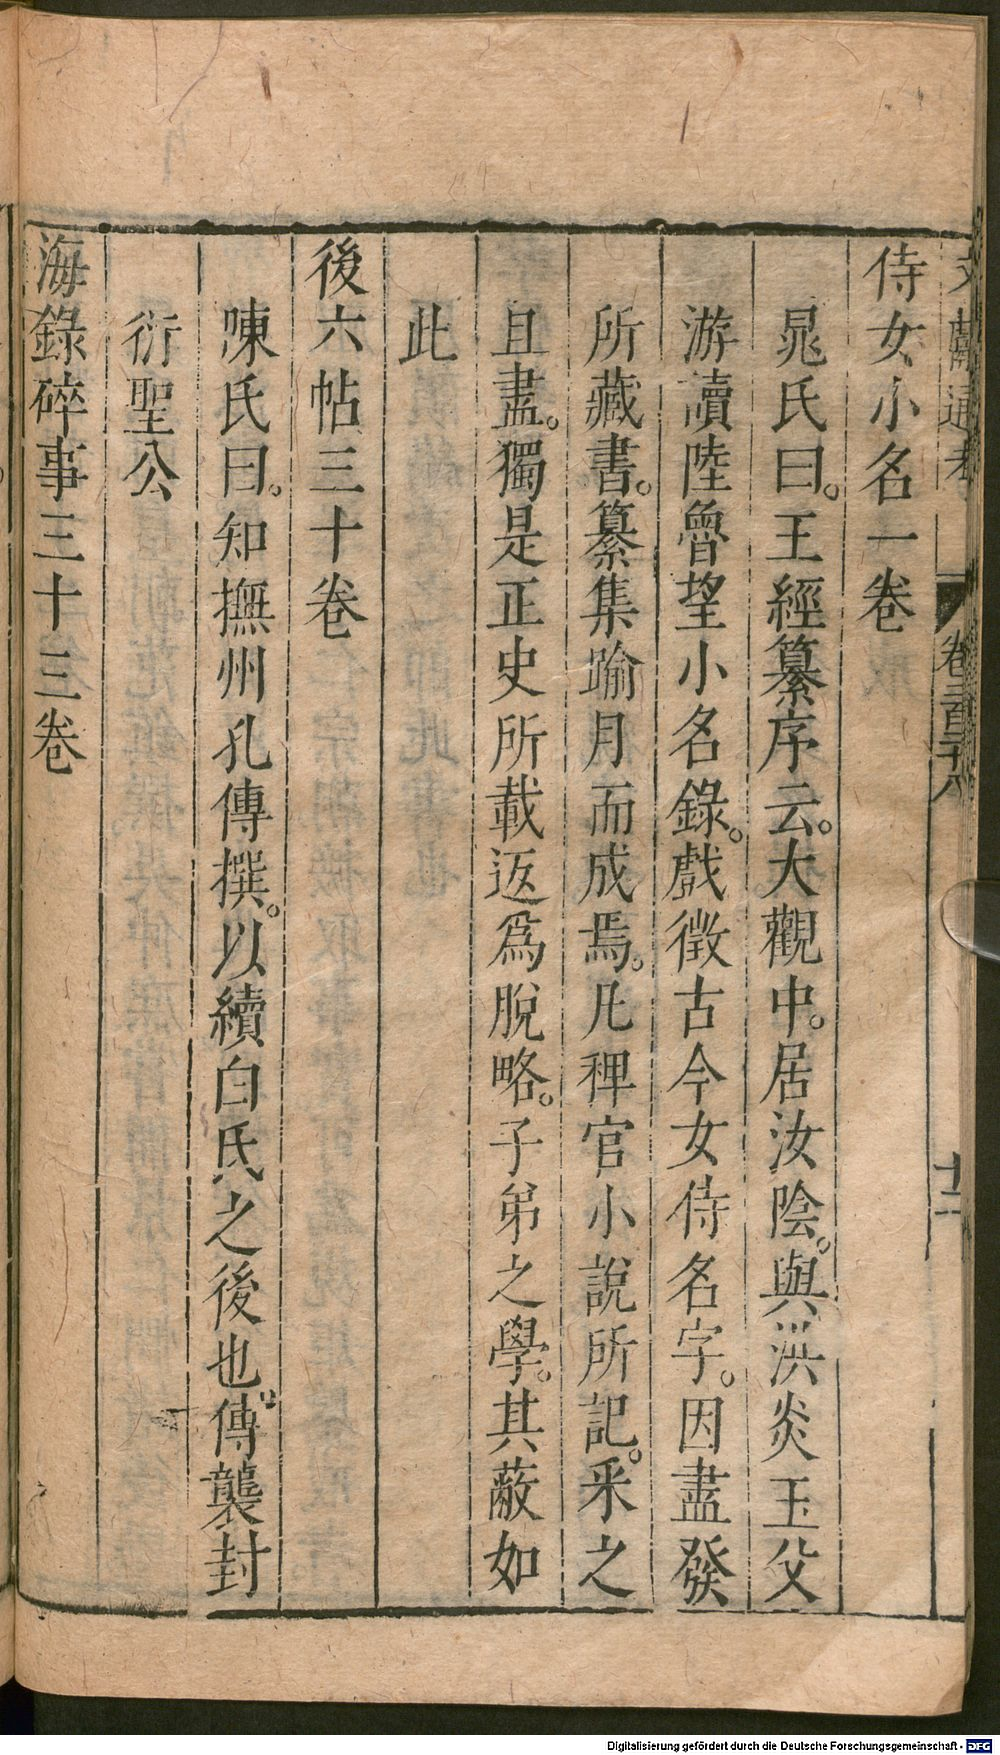 文獻通考 卷二百二十八 十二
侍女小名一卷
晁氏曰王經纂序云大觀中居汝陰與洪炎玉父
游讀陸魯望小名錄戲徵古今女侍名字因盡發
所藏書纂集踰月而成焉凡稗官小說所記采之
且盡獨是正史所載返爲脫略子弟之學其蔽如
此
後六帖三十卷
陳氏曰知撫州孔傳撰以續白氏之後也傳襲封
衍聖公
海錄碎事三十三卷
Digitalisierung gefördert durch die Deutsche Forschungsgemeinschaft - DFG